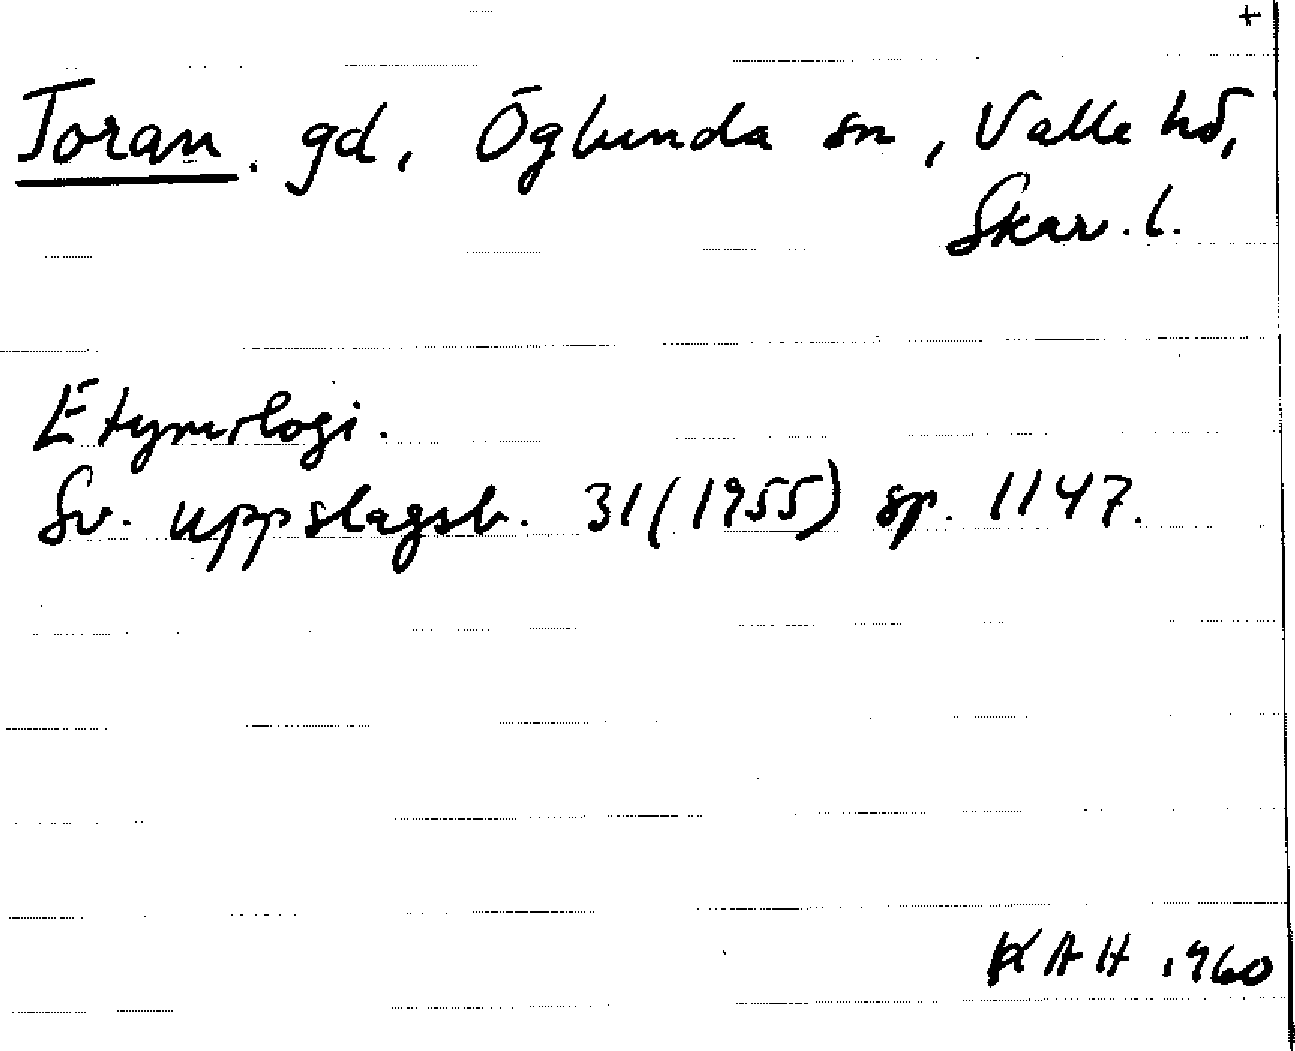 +
Toran. gd, Öglunda sn, Valle hd,
Skar. l.
Etymologi.
Sv. uppslagsb. 31 (1955) sp. 1147.
KAH 1960